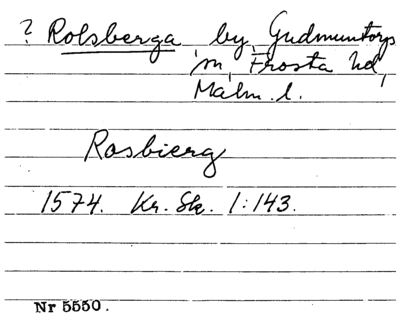 ? Rolsberga by, Gudmuntorps
sn, Frosta hd,
Malm. l.
Rosbierg
1574. Kr. Sk. 1:143.
Nr 5550.